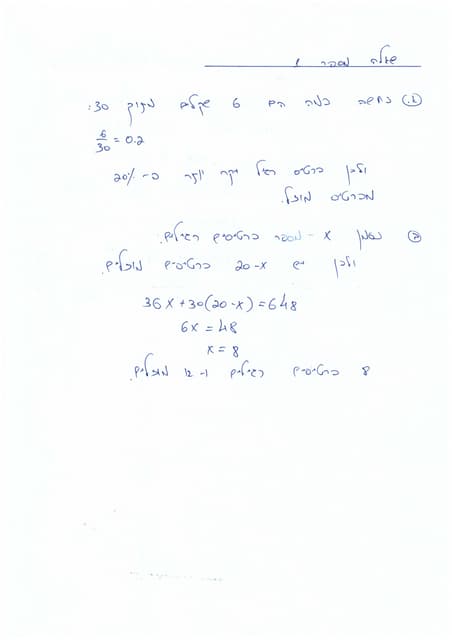 שאלה מספר 1
א. נחשב כמה הם 6 שקלים מתוך 30:
6/30 = 0.2
ולכן כרטיס רגיל יקר יותר ב- 20%
מכרטיס מוזל.
ב נסמן x - מספר כרטיסים רגילים.
ולכן יש 20-x כרטיסים מוזלים.
36x+30(20-x)=648
6x=48
x=8
8 כרטיסים רגילים ו- 12 מוזלים.